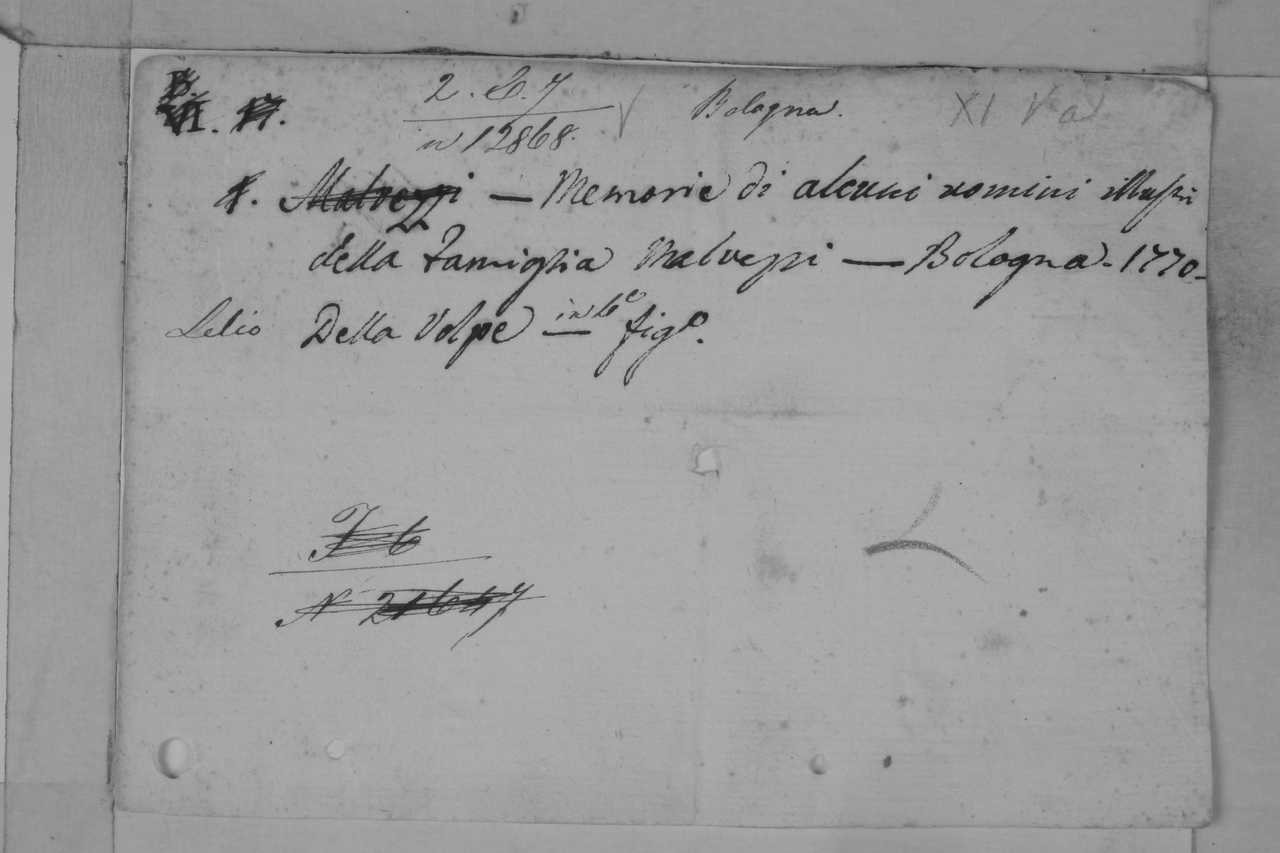 B.
VI. 17.
2. b. 7 Bologna. XI V a
n 12868.
1. Malvezzi — Memorie di alcuni uomini illustri
della Famiglia Malvezzi — Bologna - 1770 -
Lelio Della Volpe — in 4° fig°.
N 21647